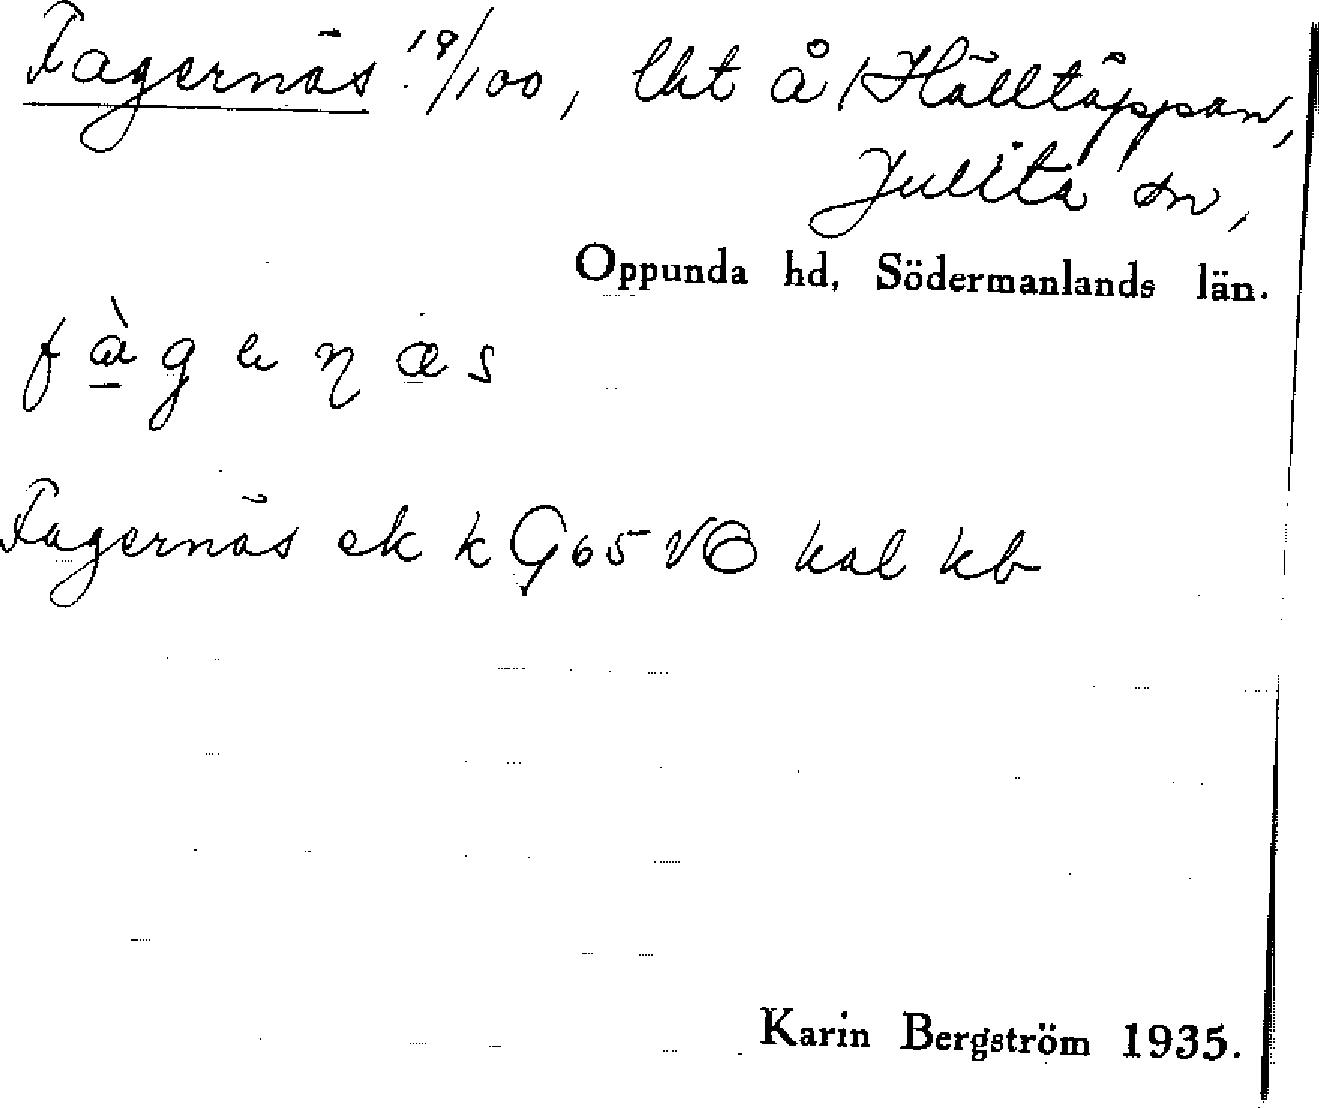 Fagernäs 19/100, lht å Hålltäppan,
Julita sn,
Oppunda hd, Södermanlands län.
fàgenæs
Fagernäs ek k G65 VB kal kb
Karin Bergström 1935.